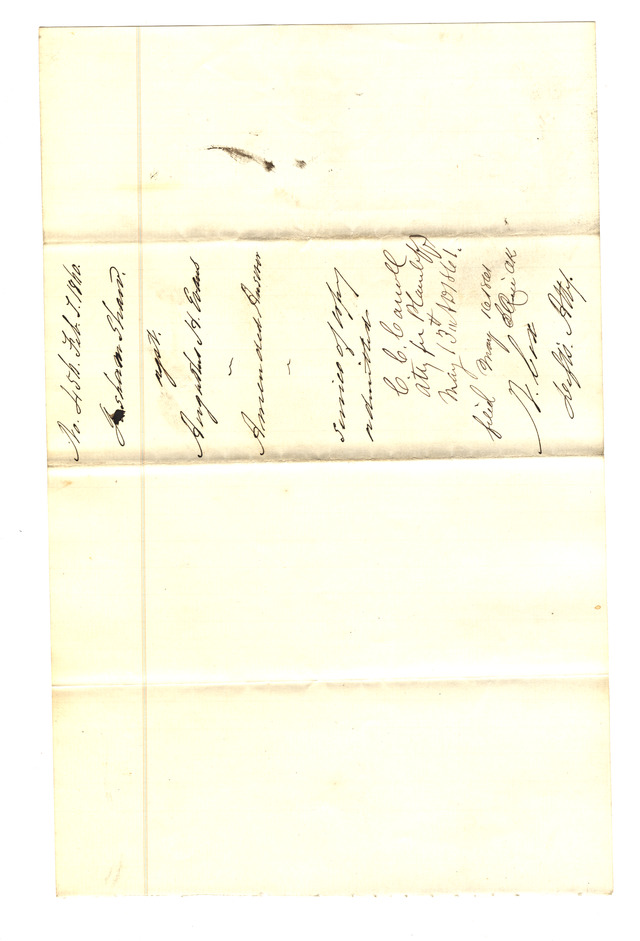 No. 454. Feb. T. 1860.
Graham Thead.
agst.
Augustus H. Evans
Amended Answer
Service of Copy
admitted
C. C. Carroll
Atty for Plaintiff
May 13th AD 1861.
filed May 16 1861
Clk
N. Cox
Defts. Atty.